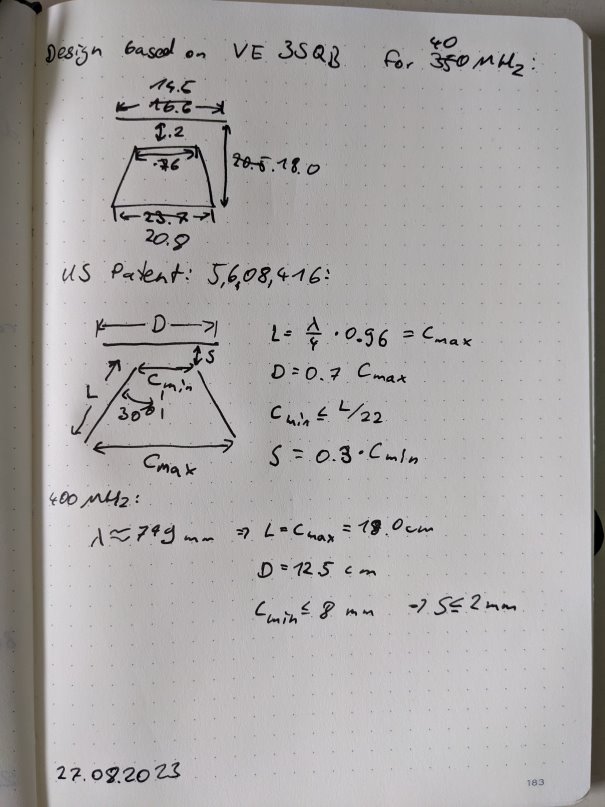 Design based on VE 3SQB for 350 MHz:
40
14.5
16.6
.2
.76
20.5. 18.0
23.7
20.8
US Patent: 5,6,08,416:
D
S
Cmin
L
30°
Cmax
L = λ/4 · 0.96 = Cmax
D = 0.7 Cmax
Cmin ≤ L/22
S = 0.3 · Cmin
400 MHz:
λ ≈ 749 mm ⇒ L = Cmax = 18.0 cm
D = 12.5 cm
Cmin ≤ 8 mm → S ≤ 2 mm
27.08.2023
183